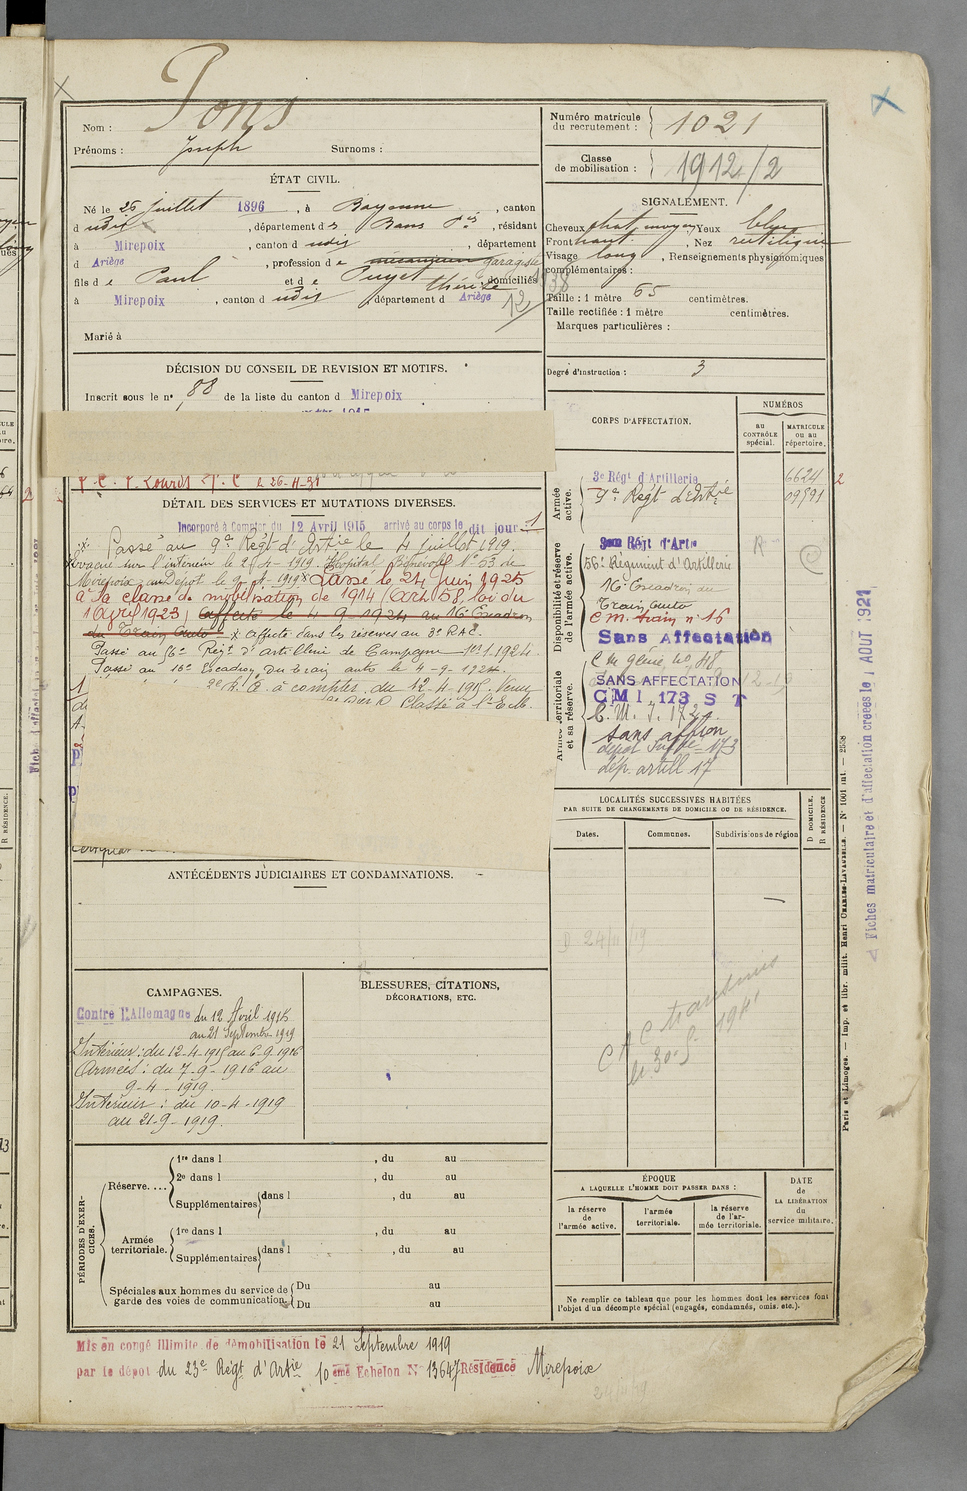 Pons
Nom :
Prénoms : Joseph Surnoms :
Numéro matricule du recrutement : 1021
Classe de mobilisation : 1912/2
ÉTAT CIVIL.
Né le 26 juillet 1896, à Bayonne, canton
d udit, département d s Bass Pés, résidant
à Mirepoix, canton d udit, département
d Ariège, profession d e garagiste
fils d e Paul et d e Puget Thérèse domiciliés
à Mirepoix, canton d udit, département d Ariège
12
Marié à
SIGNALEMENT.
Cheveux chat moyen Yeux bleu
Front haut, Nez rectiligne
Visage long, Renseignements physionomiques
complémentaires :
Taille : 1 mètre 65 centimètres.
Taille rectifiée : 1 mètre centimètres.
Marques particulières :
Degré d'instruction : 3
DÉCISION DU CONSEIL DE REVISION ET MOTIFS.
Inscrit sous le n° 88 de la liste du canton d Mirepoix
Lourdes le 26-4-31
DÉTAIL DES SERVICES ET MUTATIONS DIVERSES.
Incorporé à Compter du 12 Avril 1915 arrivé au corps le dit jour
Passé au 9e Régt d'Artie le 4 juillet 1919.
Évacué sur l'intérieur le 2-4-1919. Hôpital Bénévole N° 53 de
Mirepoix au Dépôt le 9-4-1919 Classé le 24 Juin 1925
à la classe de mobilisation de 1914 (Art. 58, loi du
1 Avril 1923) affecté le 4 9 1924 au 16e Escadron
du Train Auto x Affecté dans les réserves au 3e RAC.
Passé au 56e Régt d'artillerie de Campagne 1er 1.1924
Passé au 16e Escadron Du Train auto le 4-9-1924
2e R. A. à compter du 12-4-1915. Venu
Classé à l'Ech.
CORPS D'AFFECTATION.
NUMÉROS
au CONTRÔLE spécial.
MATRICULE ou au répertoire.
Armée active.
3e Régt d'Artillerie 6624
9e Régt d'Artie
Disponibilité et réserve de l'armée active.
3eme Régt d'Artie R
56e Régiment d'Artillerie
16e Escadron du
Train Auto
C.M. train n° 16
Sans Affectation
Armée territoriale et sa réserve.
C M génie no 48
SANS AFFECTATION
CMI 173 S T
C. M. I. 172
sans affion
dépôt Inffie 173
dép. artill 17
LOCALITÉS SUCCESSIVES HABITÉES
PAR SUITE DE CHANGEMENTS DE DOMICILE OU DE RÉSIDENCE.
Dates. Communes. Subdivisions de région
D DOMICILE, R RÉSIDENCE
D 24/11/19
ANTÉCÉDENTS JUDICIAIRES ET CONDAMNATIONS.
CAMPAGNES.
Contre l'Allemagne du 12 Avril 1915
au 21 Septembre 1919
Intérieur : du 12-4-1915 au 6-9-1916
Armées : du 7-9-1916 au
9-4-1919.
Intérieur : du 10-4-1919
au 21-9-1919.
BLESSURES, CITATIONS,
DÉCORATIONS, ETC.
PÉRIODES D'EXERCICES.
Réserve....
1re dans l , du au
2e dans l , du au
Supplémentaires dans l , du au
Armée territoriale.
1re dans l , du au
Supplémentaires dans l , du au
Spéciales aux hommes du service de garde des voies de communication.
Du au
Du au
ÉPOQUE
A LAQUELLE L'HOMME DOIT PASSER DANS :
la réserve de l'armée active.
l'armée territoriale.
la réserve de l'armée territoriale.
DATE de LA LIBÉRATION du service militaire.
Ne remplir ce tableau que pour les hommes dont les services font
l'objet d'un décompte spécial (engagés, condamnés, omis, etc.).
Mis en congé illimité de démobilisation le 21 Septembre 1919
par le dépôt du 23e Régt d'Artie 10 eme Echelon N° 13647 Résidence Mirepoix
Paris et Limoges. — Imp. et libr. milit. Henri CHARLES-LAVAUZELLE. — N° 1001 int. — 2558
Fiches matriculaire et d'affectation créées le 1 AOUT 1921